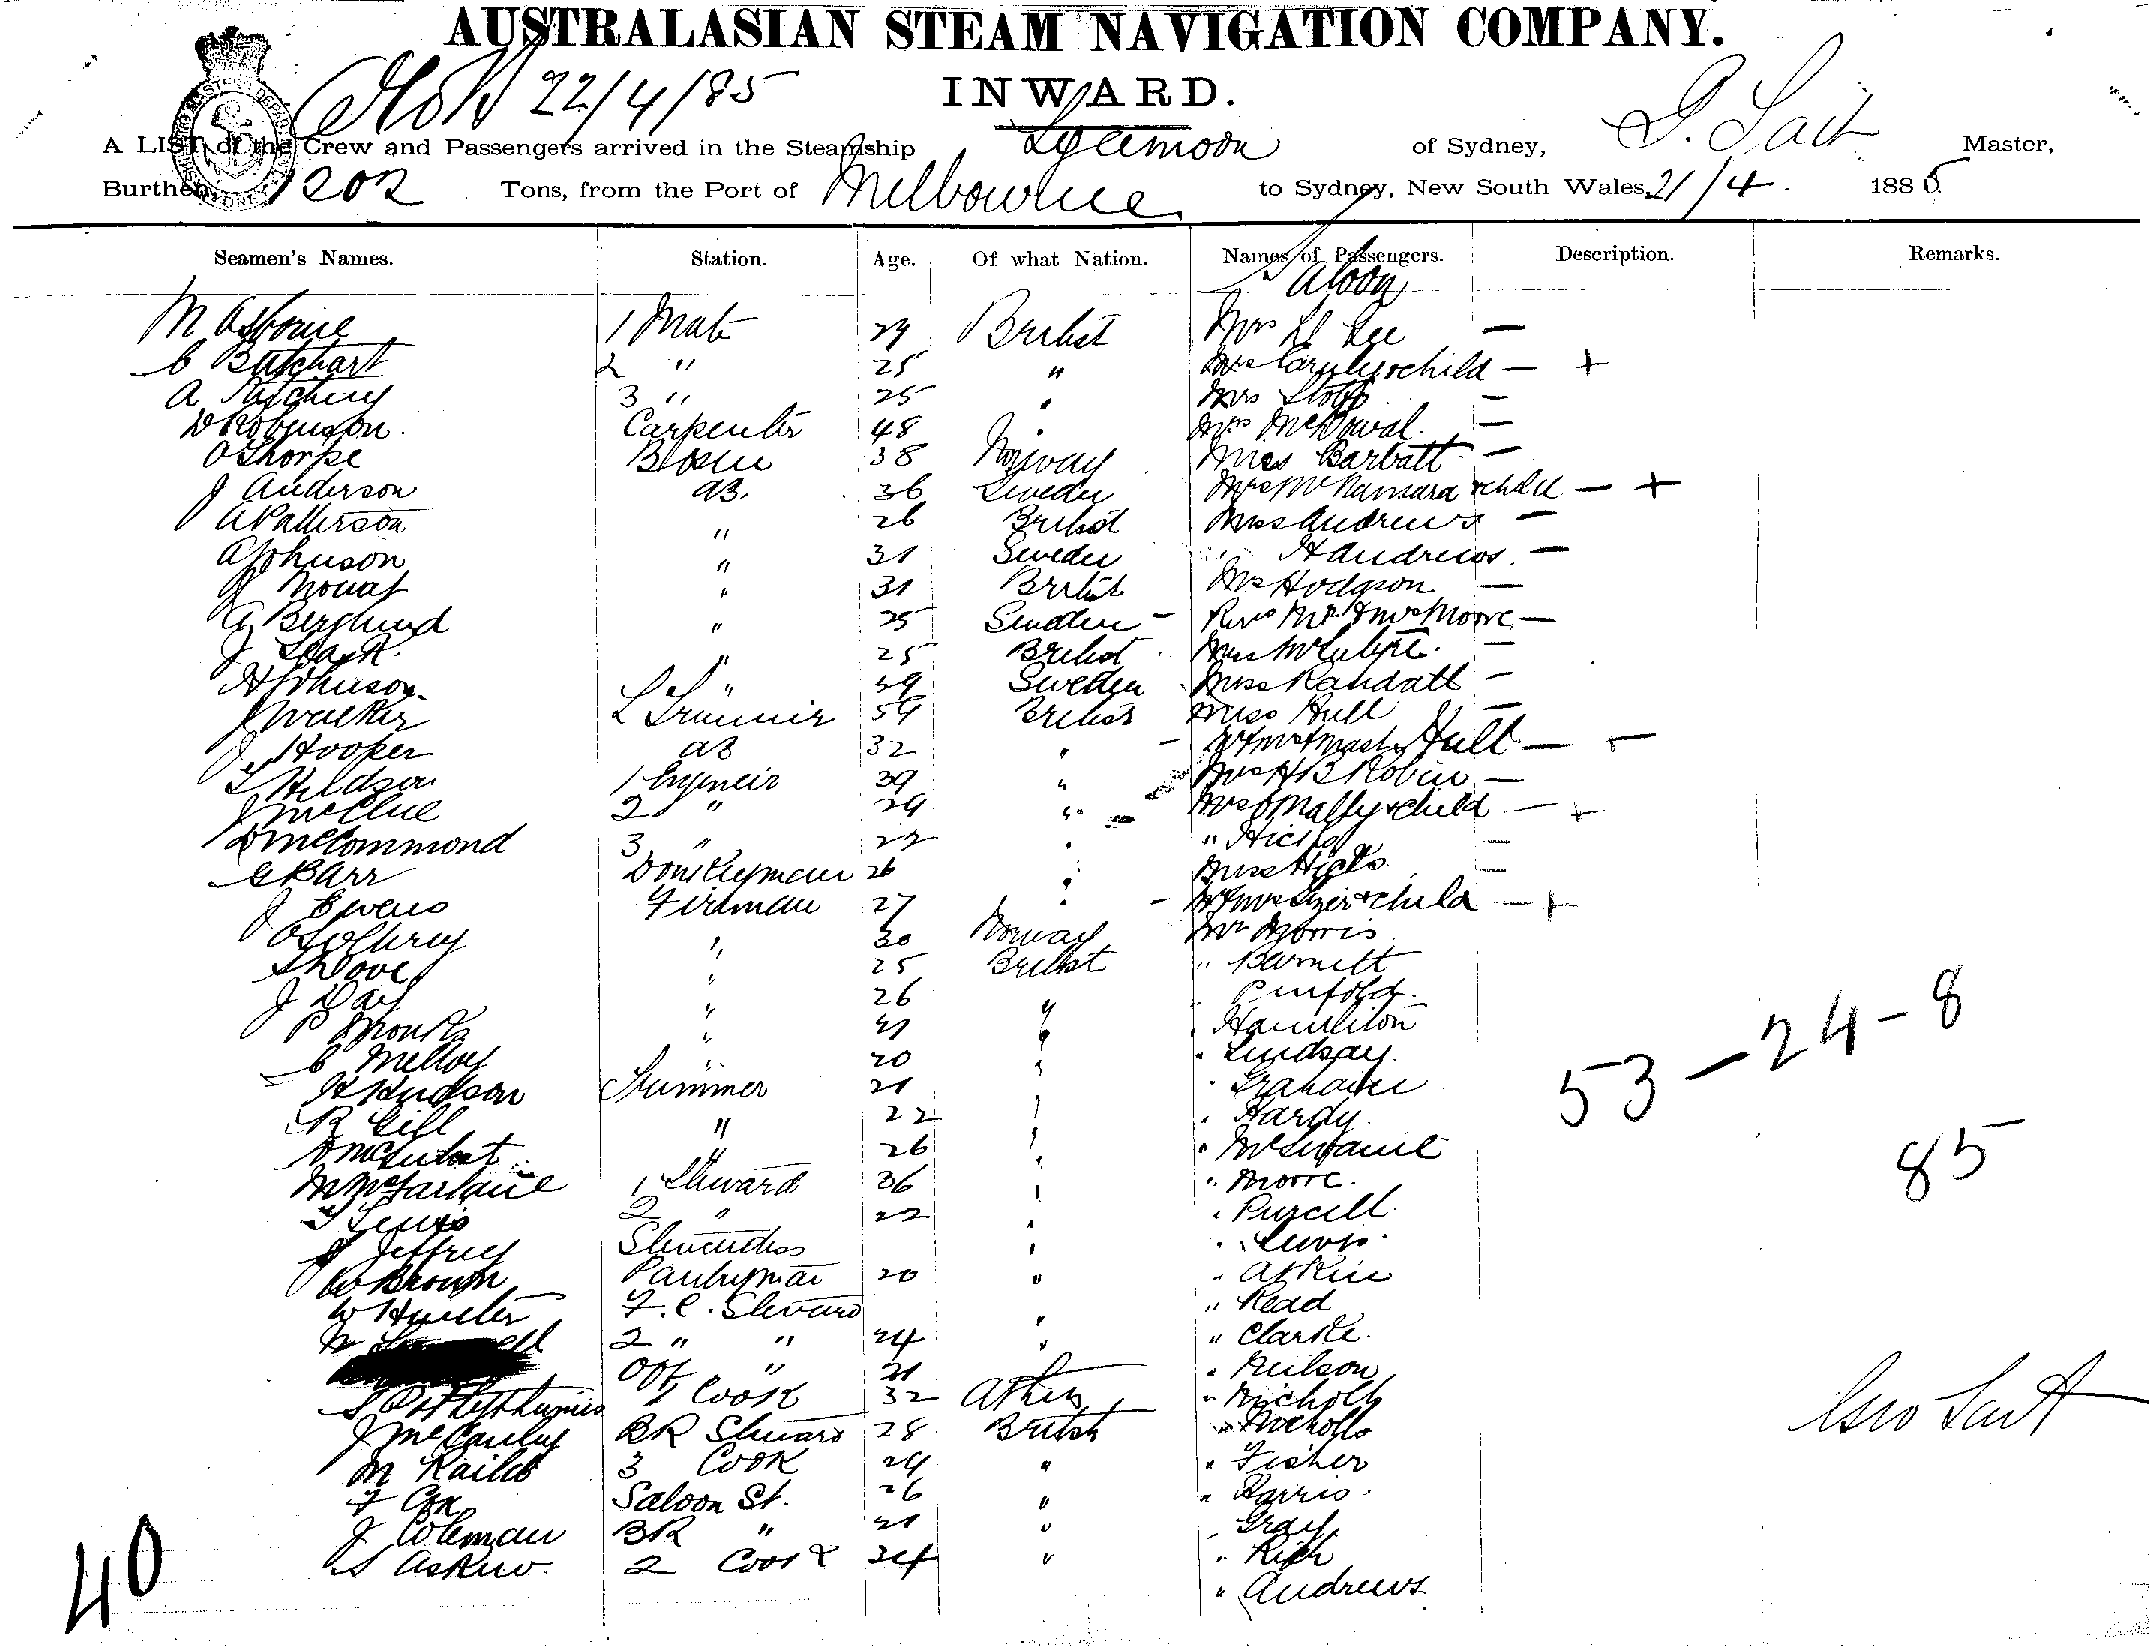 AUSTRALASIAN STEAM NAVIGATION COMPANY.
22/4/85 INWARD.
A LIST of the Crew and Passengers arrived in the Steamship Lyeemoon of Sydney, Master,
Burthen 1202 Tons, from the Port of Melbourne to Sydney, New South Wales, 21/4. 1885
Seamen's Names. Station. Age. Of what Nation. Names of Passengers. Description. Remarks.
Saloon
M Osborne 1 Mate 29 British Mrs Lee —
C Butchart 2 " 25 " Mrs & child — +
A 3 " 25 Mrs —
D Robinson. Carpenter 48 Mrs McDowal. —
O Thorpe 38 Norway Miss Barbatt —
J Anderson AB. 36 Sweden Mrs McNamara & child — +
A Patterson " 26 British Miss Andrews —
A Johnson " 31 Sweden " H Andrews. —
J Mouat " 31 British Mrs Hodgson —
A Berglund " 25 Sweden — Revd Mr & Mrs Moore —
J " 25 British Miss McIntyre. —
A Johnson " Sweden Miss Randall —
J Walker L Trimmer 59 British Miss Hull —
J Hooper AB 32 " — Mr & Mrs & Mast Hull — —
T Hildson 1 Engineer 39 " Mrs H B Robin —
J McClue 2 " 29 " Mrs OMally & child — +
D McCommond 3 " 22 " " —
G Barr Donkeyman 26 " Miss —
J Ewens Fireman 27 " — Mr & Mrs & child — +
O " 30 Norway Mr Morris
S Dove " 25 British " Barnett
J Day " 26 " Penfold.
P " 21 " " Hamilton
C Melloy " 20 " Lindsay.
H Hudson Trimmer 21 " Grahame
53 — 24 — 8
R Gill " 22 " Hardy
D " 26 " McSwaine
M McFarlane 1 Steward 36 " Moore.
85
T Lewis 2 " 22 " Purcell.
J Jeffrey Stewardess " Lewis.
W Brown Pantryman 20 " " Atkin
W Hunter F.C. Steward " " Read
2 " " 24 " " Clarke.
Off " 21 " Neilson
1 Cook 32 Athens " Nicholls
J McCauley BR Steward 28 British " Nicholls
Geo Sait
M 3 Cook 29 " " Fisher
F Cox Saloon St. 26 " " Harris.
J Coleman BR " 21 " " Gray
S Askew. 2 Cook 34 " " Rich
" Andrews
40